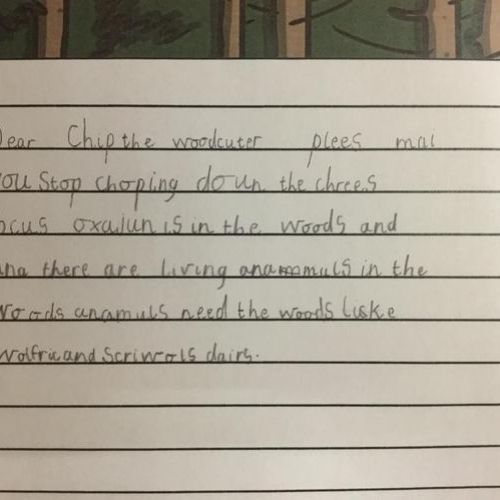 Dear Chip the woodcuter plees mai
you Stop choping doun the chrees
ocus oxajun is in the woods and
ana there are living anammuls in the
Woods anamuls need the woods liske
Wolf and Scriwrols dairs.